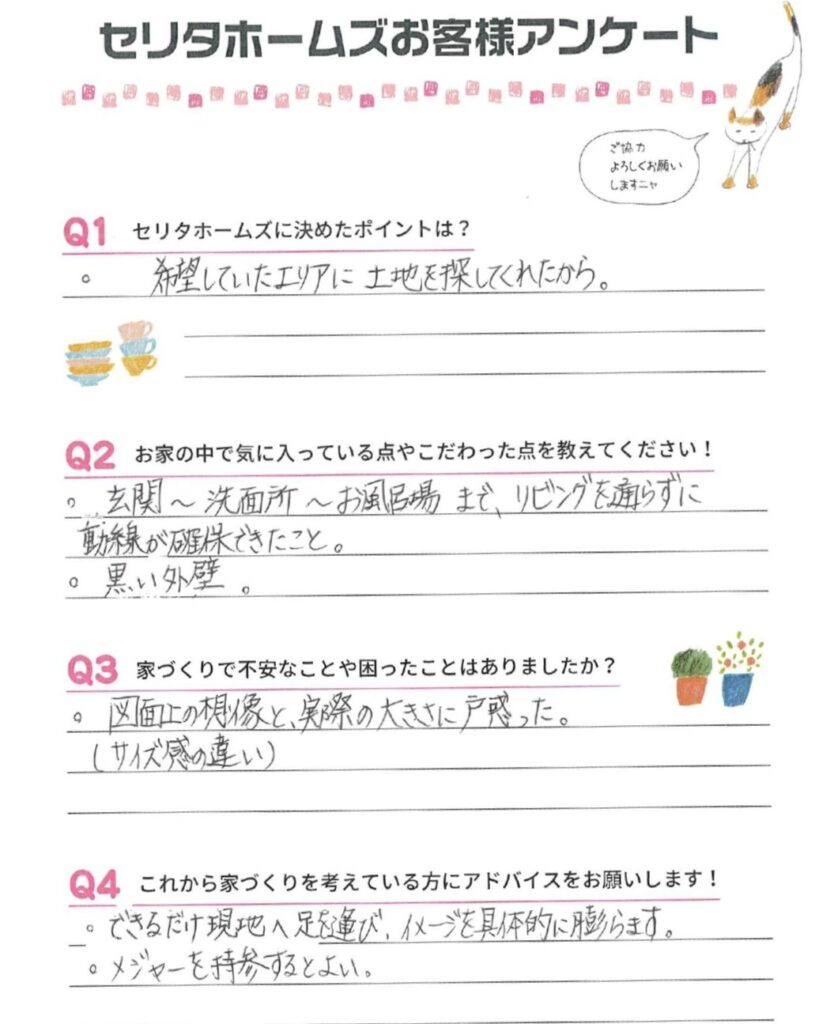 セリタホームズお客様アンケート
ご協力
よろしくお願い
しますニャ
Q1 セリタホームズに決めたポイントは？
。 希望していたエリアに 土地を探してくれたから。
Q2 お家の中で気に入っている点やこだわった点を教えてください！
。玄関～洗面所～お風呂場まで、リビングを通らずに
動線が確保できたこと。
。黒い外壁。
Q3 家づくりで不安なことや困ったことはありましたか？
。図面上の想像と、実際の大きさに戸惑った。
(サイズ感の違い)
Q4 これから家づくりを考えている方にアドバイスをお願いします！
。できるだけ現地へ足を運び、イメージを具体的に膨らます。
。メジャーを持参するとよい。